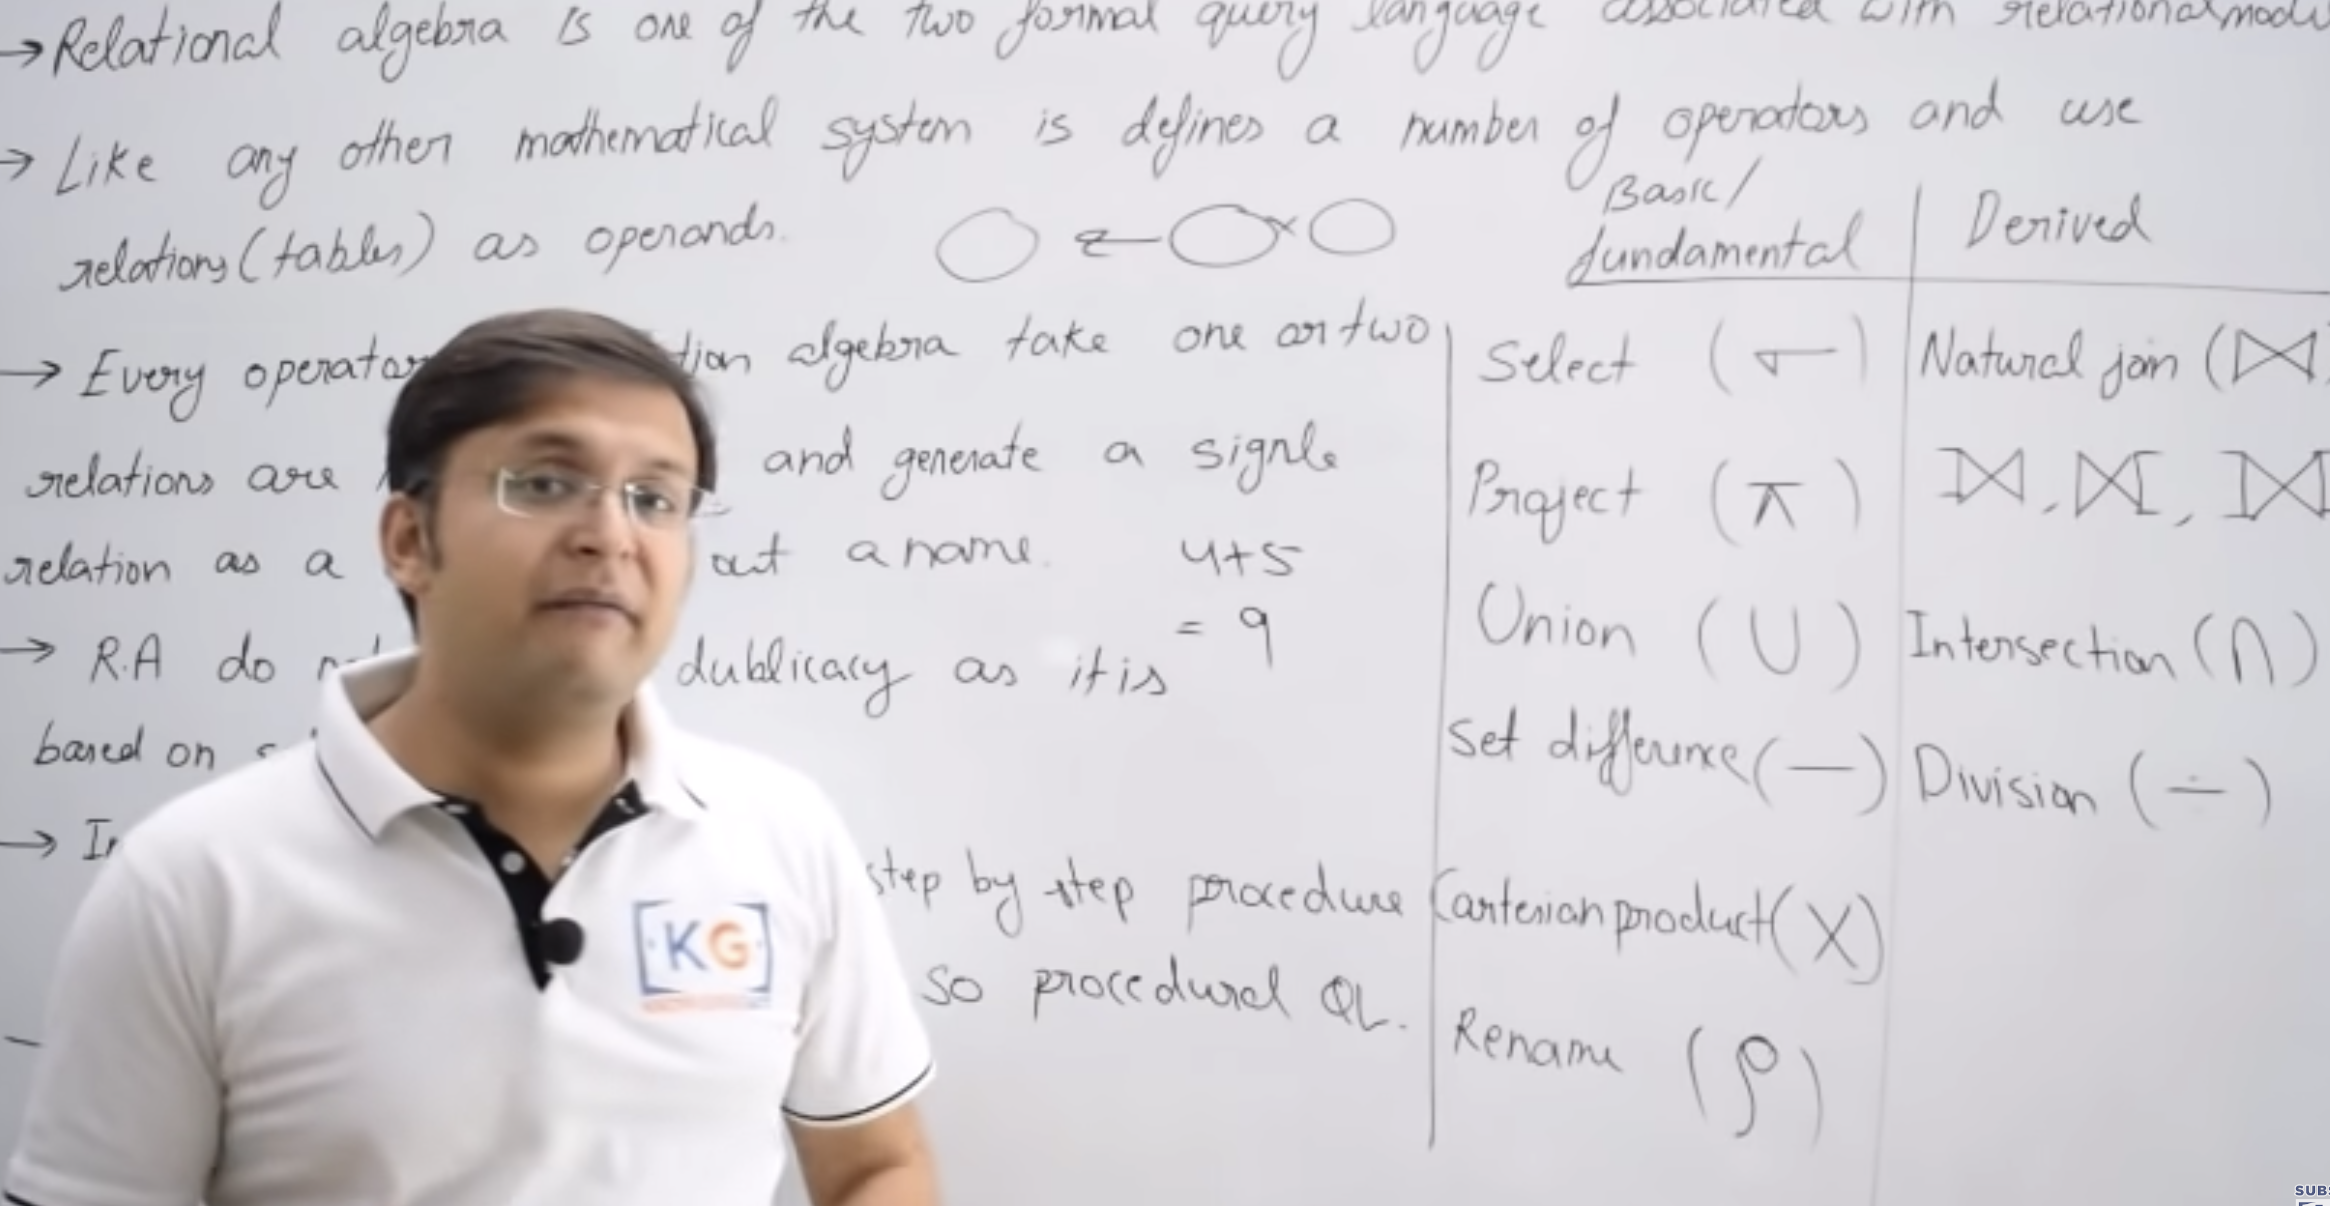 → Relational algebra is one of the two formal query language associated with relational
→ Like any other mathematical system is defines a number of operators and use
relations (tables) as operands.
→ Every operator algebra take one or two
relations are and generate a signle
relation as a out a name.
4+5
= 9
→ R.A do dublicacy as it is
based on
→ step by step procedure
so procedural QL.
Basic/ fundamental | Derived
Select (σ) | Natural join (⋈)
Project (π) | ⟕, ⟖, ⟗
Union (∪) | Intersection (∩)
Set difference (—) | Division (÷)
Cartesian product (X)
Rename (ρ)
KG
SUBS